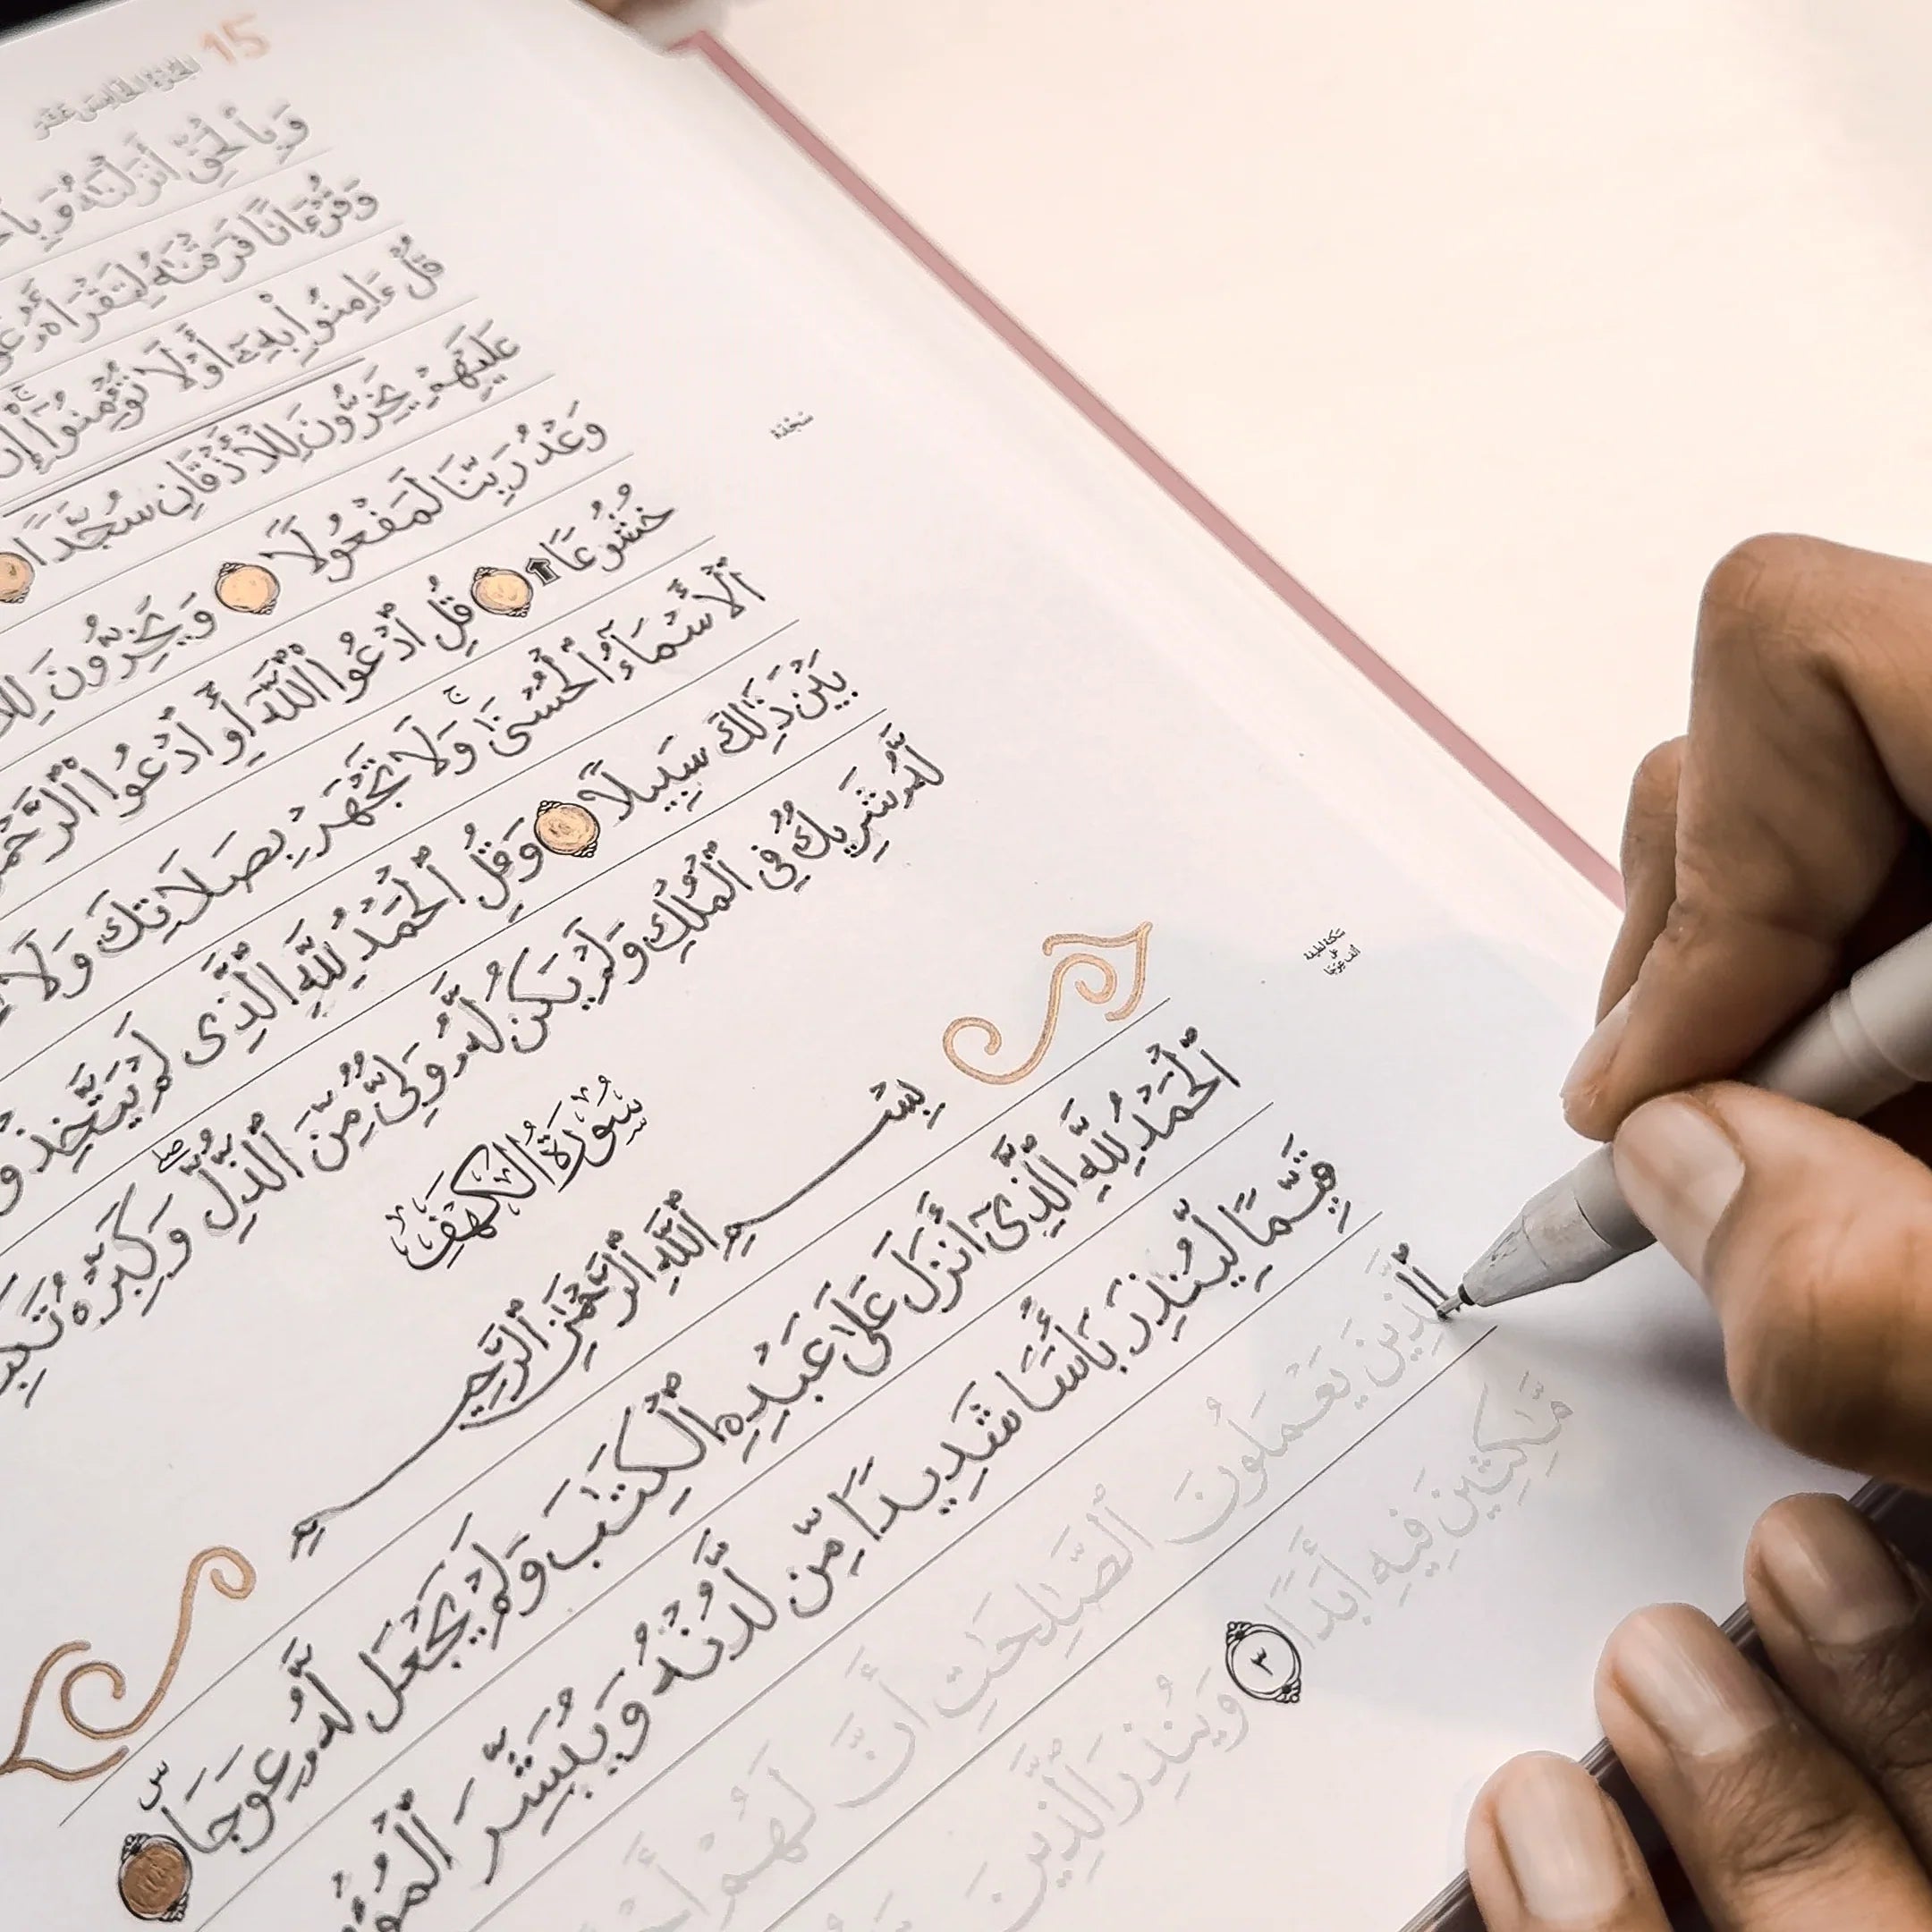 15 الجزء الخامس عشر
وَبِٱلْحَقِّ أَنزَلْنَٰهُ وَبِٱ
وَقُرْءَانًا فَرَقْنَٰهُ لِتَقْرَأَهُۥ
قُلْ ءَامِنُوا۟ بِهِۦٓ أَوْ لَا تُؤْمِنُوٓا۟ ۚ إِنَّ
عَلَيْهِمْ يَخِرُّونَ لِلْأَذْقَانِ سُجَّدًا
سجدة
وَعْدُ رَبِّنَا لَمَفْعُولًا وَيَخِرُّونَ
خُشُوعًا قُلِ ٱدْعُوا۟ ٱللَّهَ أَوِ ٱدْعُوا۟ ٱلرَّحْمَ
ٱلْأَسْمَآءُ ٱلْحُسْنَىٰ ۚ وَلَا تَجْهَرْ بِصَلَاتِكَ وَلَا
بَيْنَ ذَٰلِكَ سَبِيلًا وَقُلِ ٱلْحَمْدُ لِلَّهِ ٱلَّذِى لَمْ يَتَّخِذْ
لَّهُۥ شَرِيكٌ فِى ٱلْمُلْكِ وَلَمْ يَكُن لَّهُۥ وَلِىٌّ مِّنَ ٱلذُّلِّ ۖ وَكَبِّرْهُ
سُورَةُ الكَهْفِ
بِسْمِ ٱللَّهِ ٱلرَّحْمَٰنِ ٱلرَّحِيمِ
ٱلْحَمْدُ لِلَّهِ ٱلَّذِىٓ أَنزَلَ عَلَىٰ عَبْدِهِ ٱلْكِتَٰبَ وَلَمْ يَجْعَل لَّهُۥ عِوَجَا ۜ
سكتة لطيفة
على
ألف عوجا
قَيِّمًا لِّيُنذِرَ بَأْسًا شَدِيدًا مِّن لَّدُنْهُ وَيُبَشِّرَ
ٱلَّذِينَ يَعْمَلُونَ ٱلصَّٰلِحَٰتِ أَنَّ لَهُمْ
مَّٰكِثِينَ فِيهِ أَبَدًا ٣ وَيُنذِرَ ٱلَّذِينَ